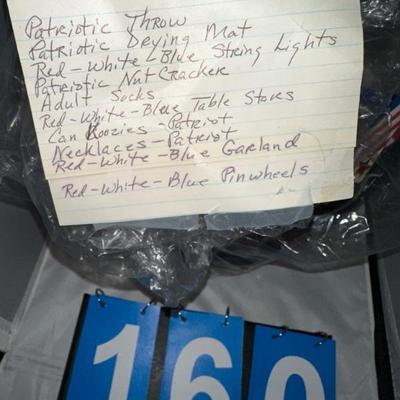 Patriotic Throw
Patriotic Drying Mat
Red-White-Blue String Lights
Patriotic NutCracker
Adult Socks
Red-White-Blue Table Stars
Can Koozies-Patriot
Necklaces-Patriot
Red-White-Blue Garland
Red-White-Blue Pinwheels
160